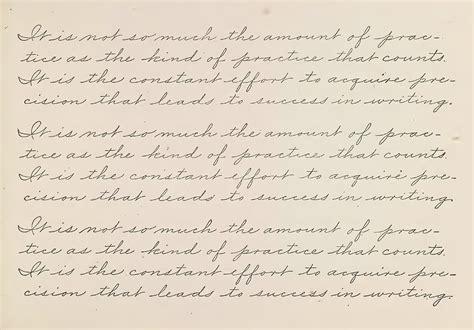 It is not so much the amount of prac-
tice as the kind of practice that counts.
It is the constant effort to acquire pre-
cision that leads to success in writing.
It is not so much the amount of prac-
tice as the kind of practice that counts.
It is the constant effort to acquire pre-
cision that leads to success in writing.
It is not so much the amount of prac-
tice as the kind of practice that counts.
It is the constant effort to acquire pre-
cision that leads to success in writing.